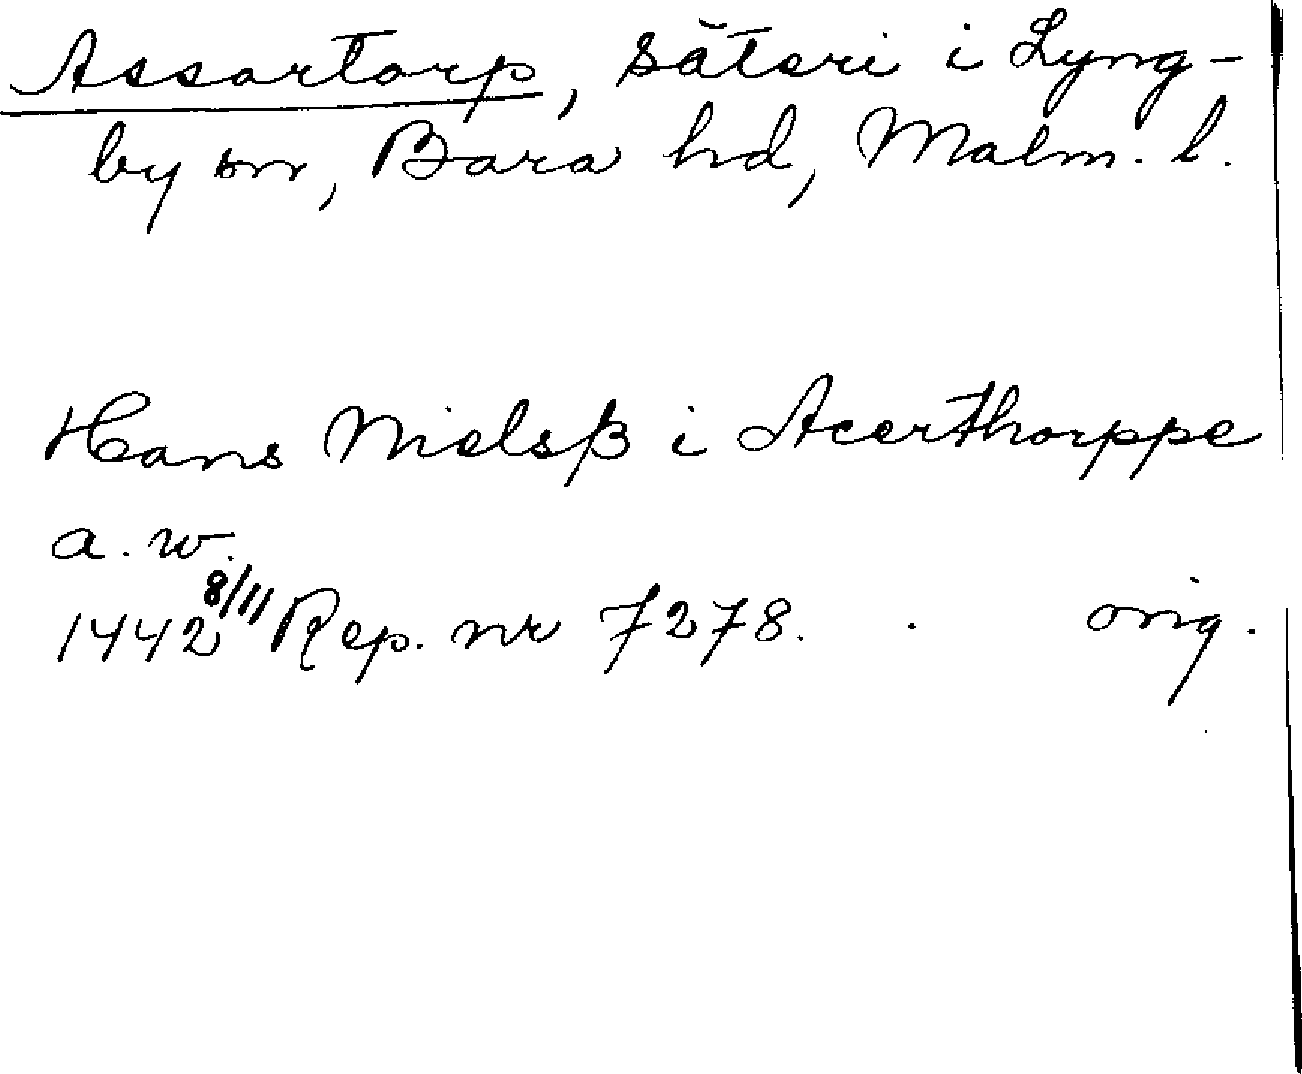 Assartorp, säteri i Lyng-
by sn, Bara hd, Malm. l.
Hans Nielsß i Acerthorppe
a. w.
1442 8/11 Rep. nr 7278. orig.